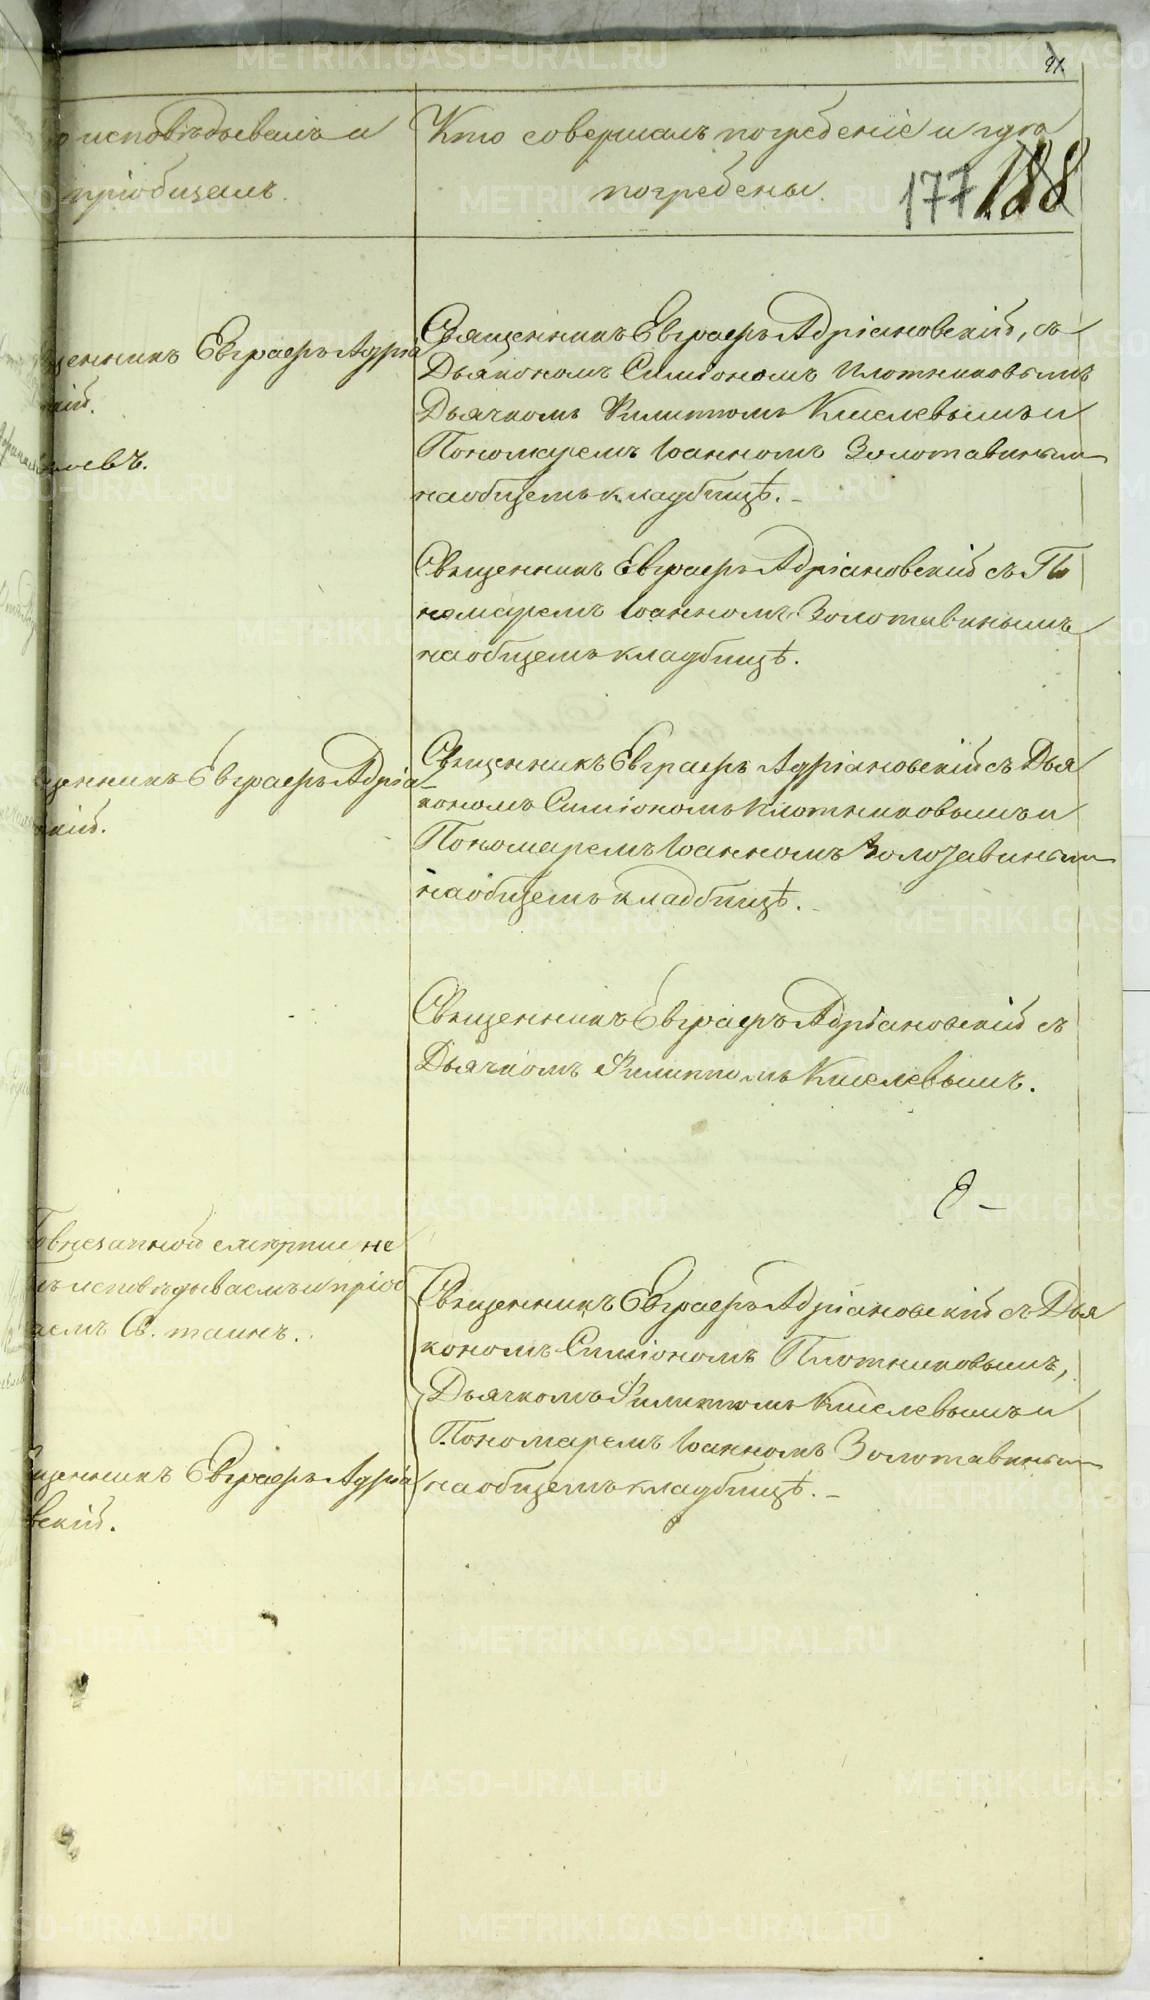 91.
исповѣдывалъ и
пріобщалъ.
Кто совершалъ погребеніе и гдѣ
погребены.
177 188
щенникъ Евграфъ Адріа
кій.
Священникъ Евграфъ Адріановскій, съ
Дьякономъ Симіономъ Плотниковымъ
Дьячкомъ Филиппомъ Киселевымъ и
Пономаремъ Іоанномъ Золотавиным
на общемъ кладбищѣ.
Священникъ Евграфъ Адріановскій съ По
номаремъ Іоанномъ Золотавинымъ
на общемъ кладбищѣ.
щенникъ Евграфъ Адріа
кій.
Священникъ Евграфъ Адріановскій съ Дья
кономъ Симіономъ Плотниковымъ и
Пономаремъ Іоанномъ Золотавиным
на общемъ кладбищѣ.
Священникъ Евграфъ Адріановскій съ
Дьячкомъ Филиппомъ Киселевымъ.
внезапной смертіи не
исповѣдываемъ и пріоб
аемъ Св. таинъ.
щенникъ Евграфъ Адріа
вскій.
Священникъ Евграфъ Адріановскій съ Дья
кономъ Симіономъ Плотниковымъ,
Дьячкомъ Филиппомъ Киселевымъ и
Пономаремъ Іоанномъ Золотавиным
на общемъ кладбищѣ.
METRIKI.GASO-URAL.RU